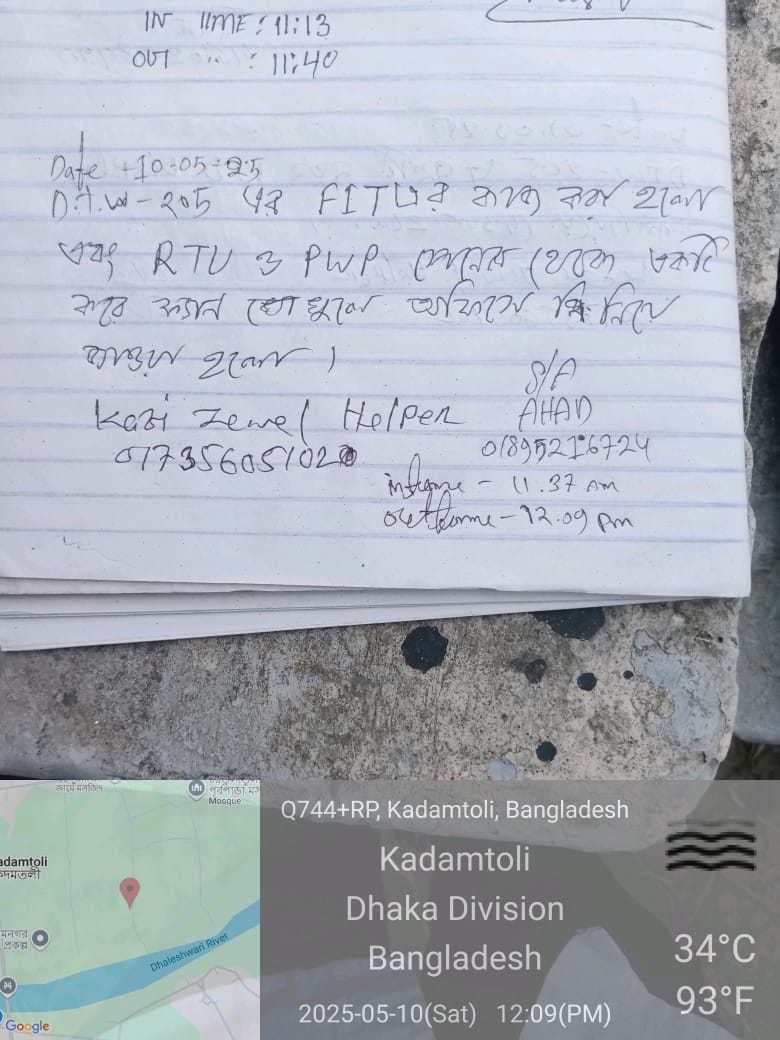 IN TIME : 11:13
OUT " : 11:40
Date : 10-05-25
D.T.W - 205 এর FITর কাজ করা হলো
এবং RTU ও PWP. প্যানেল থেকে একটি
করে ফ্যান খুলে অফিসে নিয়ে
যাওয়া হলো ।
S/A
Kazi Jewel Helper AHAD
01735605102 01895216724
intime - 11.37 am
outtime - 12.09 pm
জামে মসজিদ
পূর্বপাড়া মস
Mosque
adamtoli
কদমতলী
মনগর
প্রকল্প
Dhaleshwari River
Google
Q744+RP, Kadamtoli, Bangladesh
Kadamtoli
Dhaka Division
Bangladesh
34°C
93°F
2025-05-10(Sat) 12:09(PM)